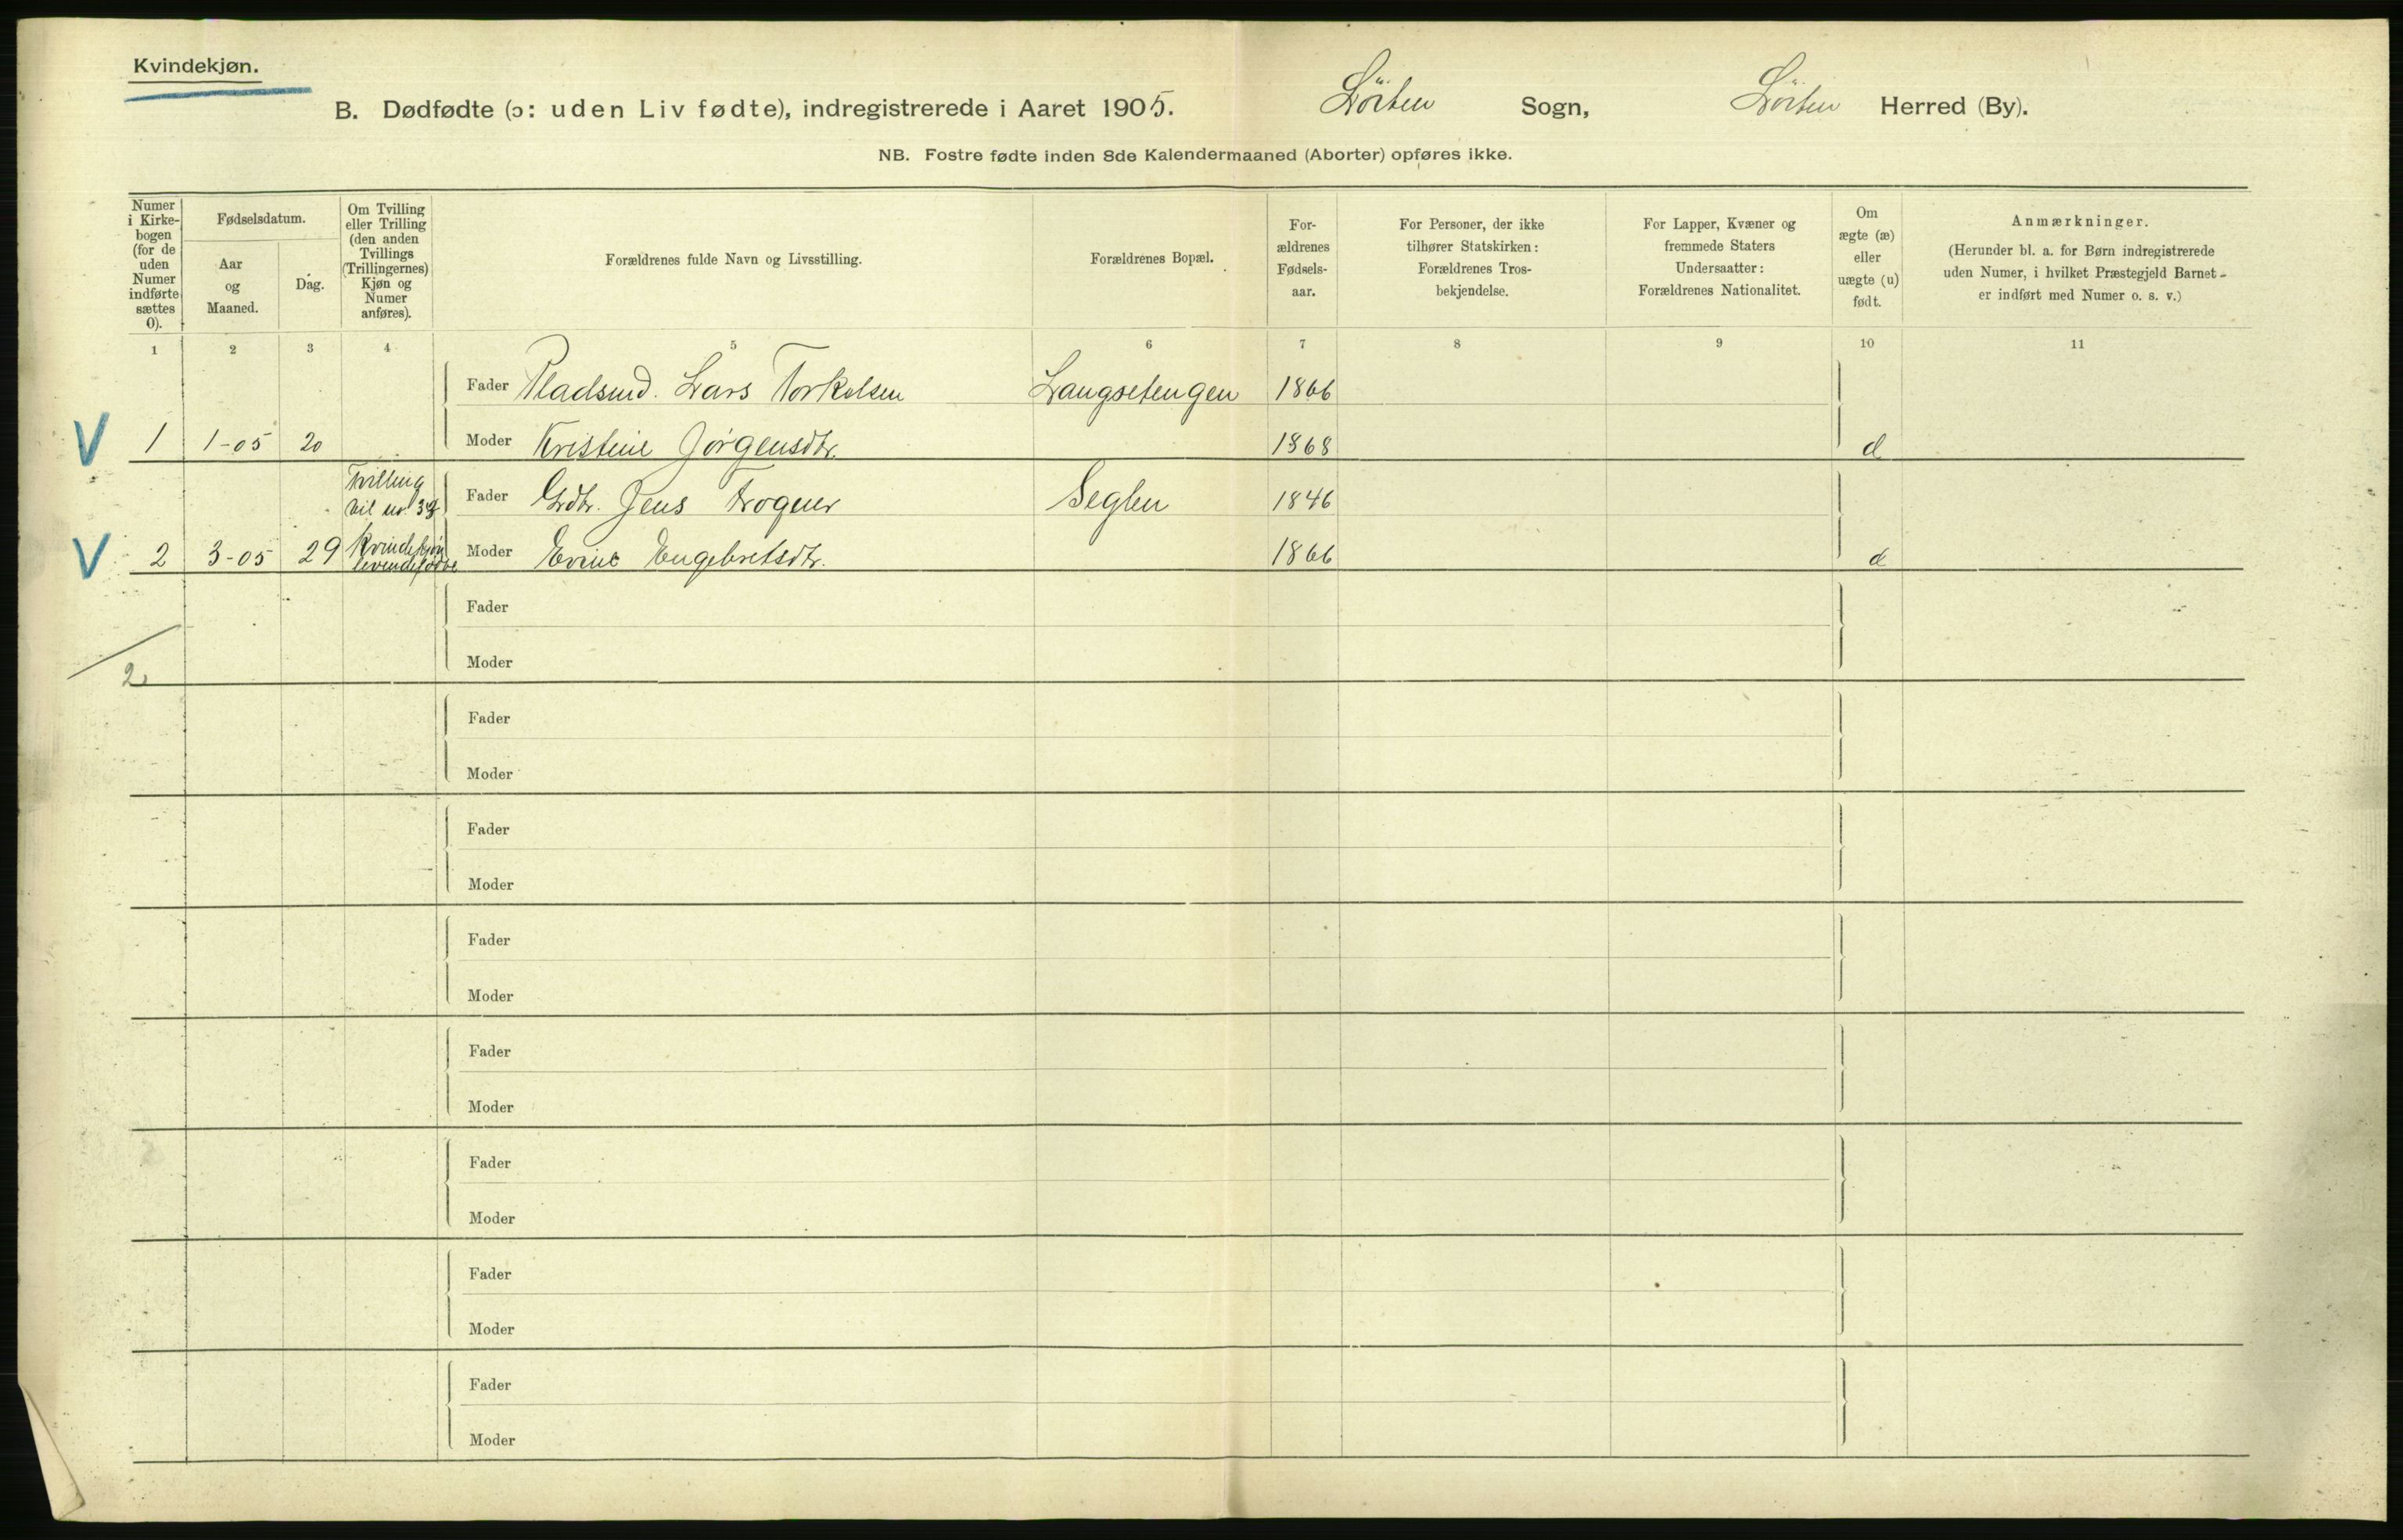 Kvindekjøn.
B. Dødfødte (ɔ: uden Liv fødte), indregistrerede i Aaret 1905. Löiten Sogn, Löiten Herred (By).
NB. Fostre fødte inden 8de Kalendermaaned (Aborter) opføres ikke.
Numer
i Kirke-
bogen
(for de
uden
Numer
indførte
sættes
0).
Fødselsdatum.
Aar
og
Maaned.
Dag.
Om Tvilling
eller Trilling
(den anden
Tvillings
(Trillingernes)
Kjøn og
Numer
anføres).
Forældrenes fulde Navn og Livsstilling.
Forældrenes Bopæl.
For-
ældrenes
Fødsels-
aar.
For Personer, der ikke
tilhører Statskirken:
Forældrenes Tros-
bekjendelse.
For Lapper, Kvæner og
fremmede Staters
Undersaatter:
Forældrenes Nationalitet.
Om
ægte (æ)
eller
uægte (u)
født.
Anmærkninger.
(Herunder bl. a. for Børn indregistrerede
uden Numer, i hvilket Præstegjeld Barnet
er indført med Numer o. s. v.)
1 2 3 4 5 6 7 8 9 10 11
Fader Pladsmd. Lars Torkelsen Langsetengen 1866
V 1 1-05 20 Moder Kristine Jörgensdtr. 1868 æ
Tvilling
til no 34 Fader Grdbr. Jens Frogner Seglen 1846
V 2 3-05 29 Kvindekjön Moder Evine Engebretsdtr. 1866 æ
levendefödte
Fader
Moder
2
Fader
Moder
Fader
Moder
Fader
Moder
Fader
Moder
Fader
Moder
Fader
Moder
Fader
Moder